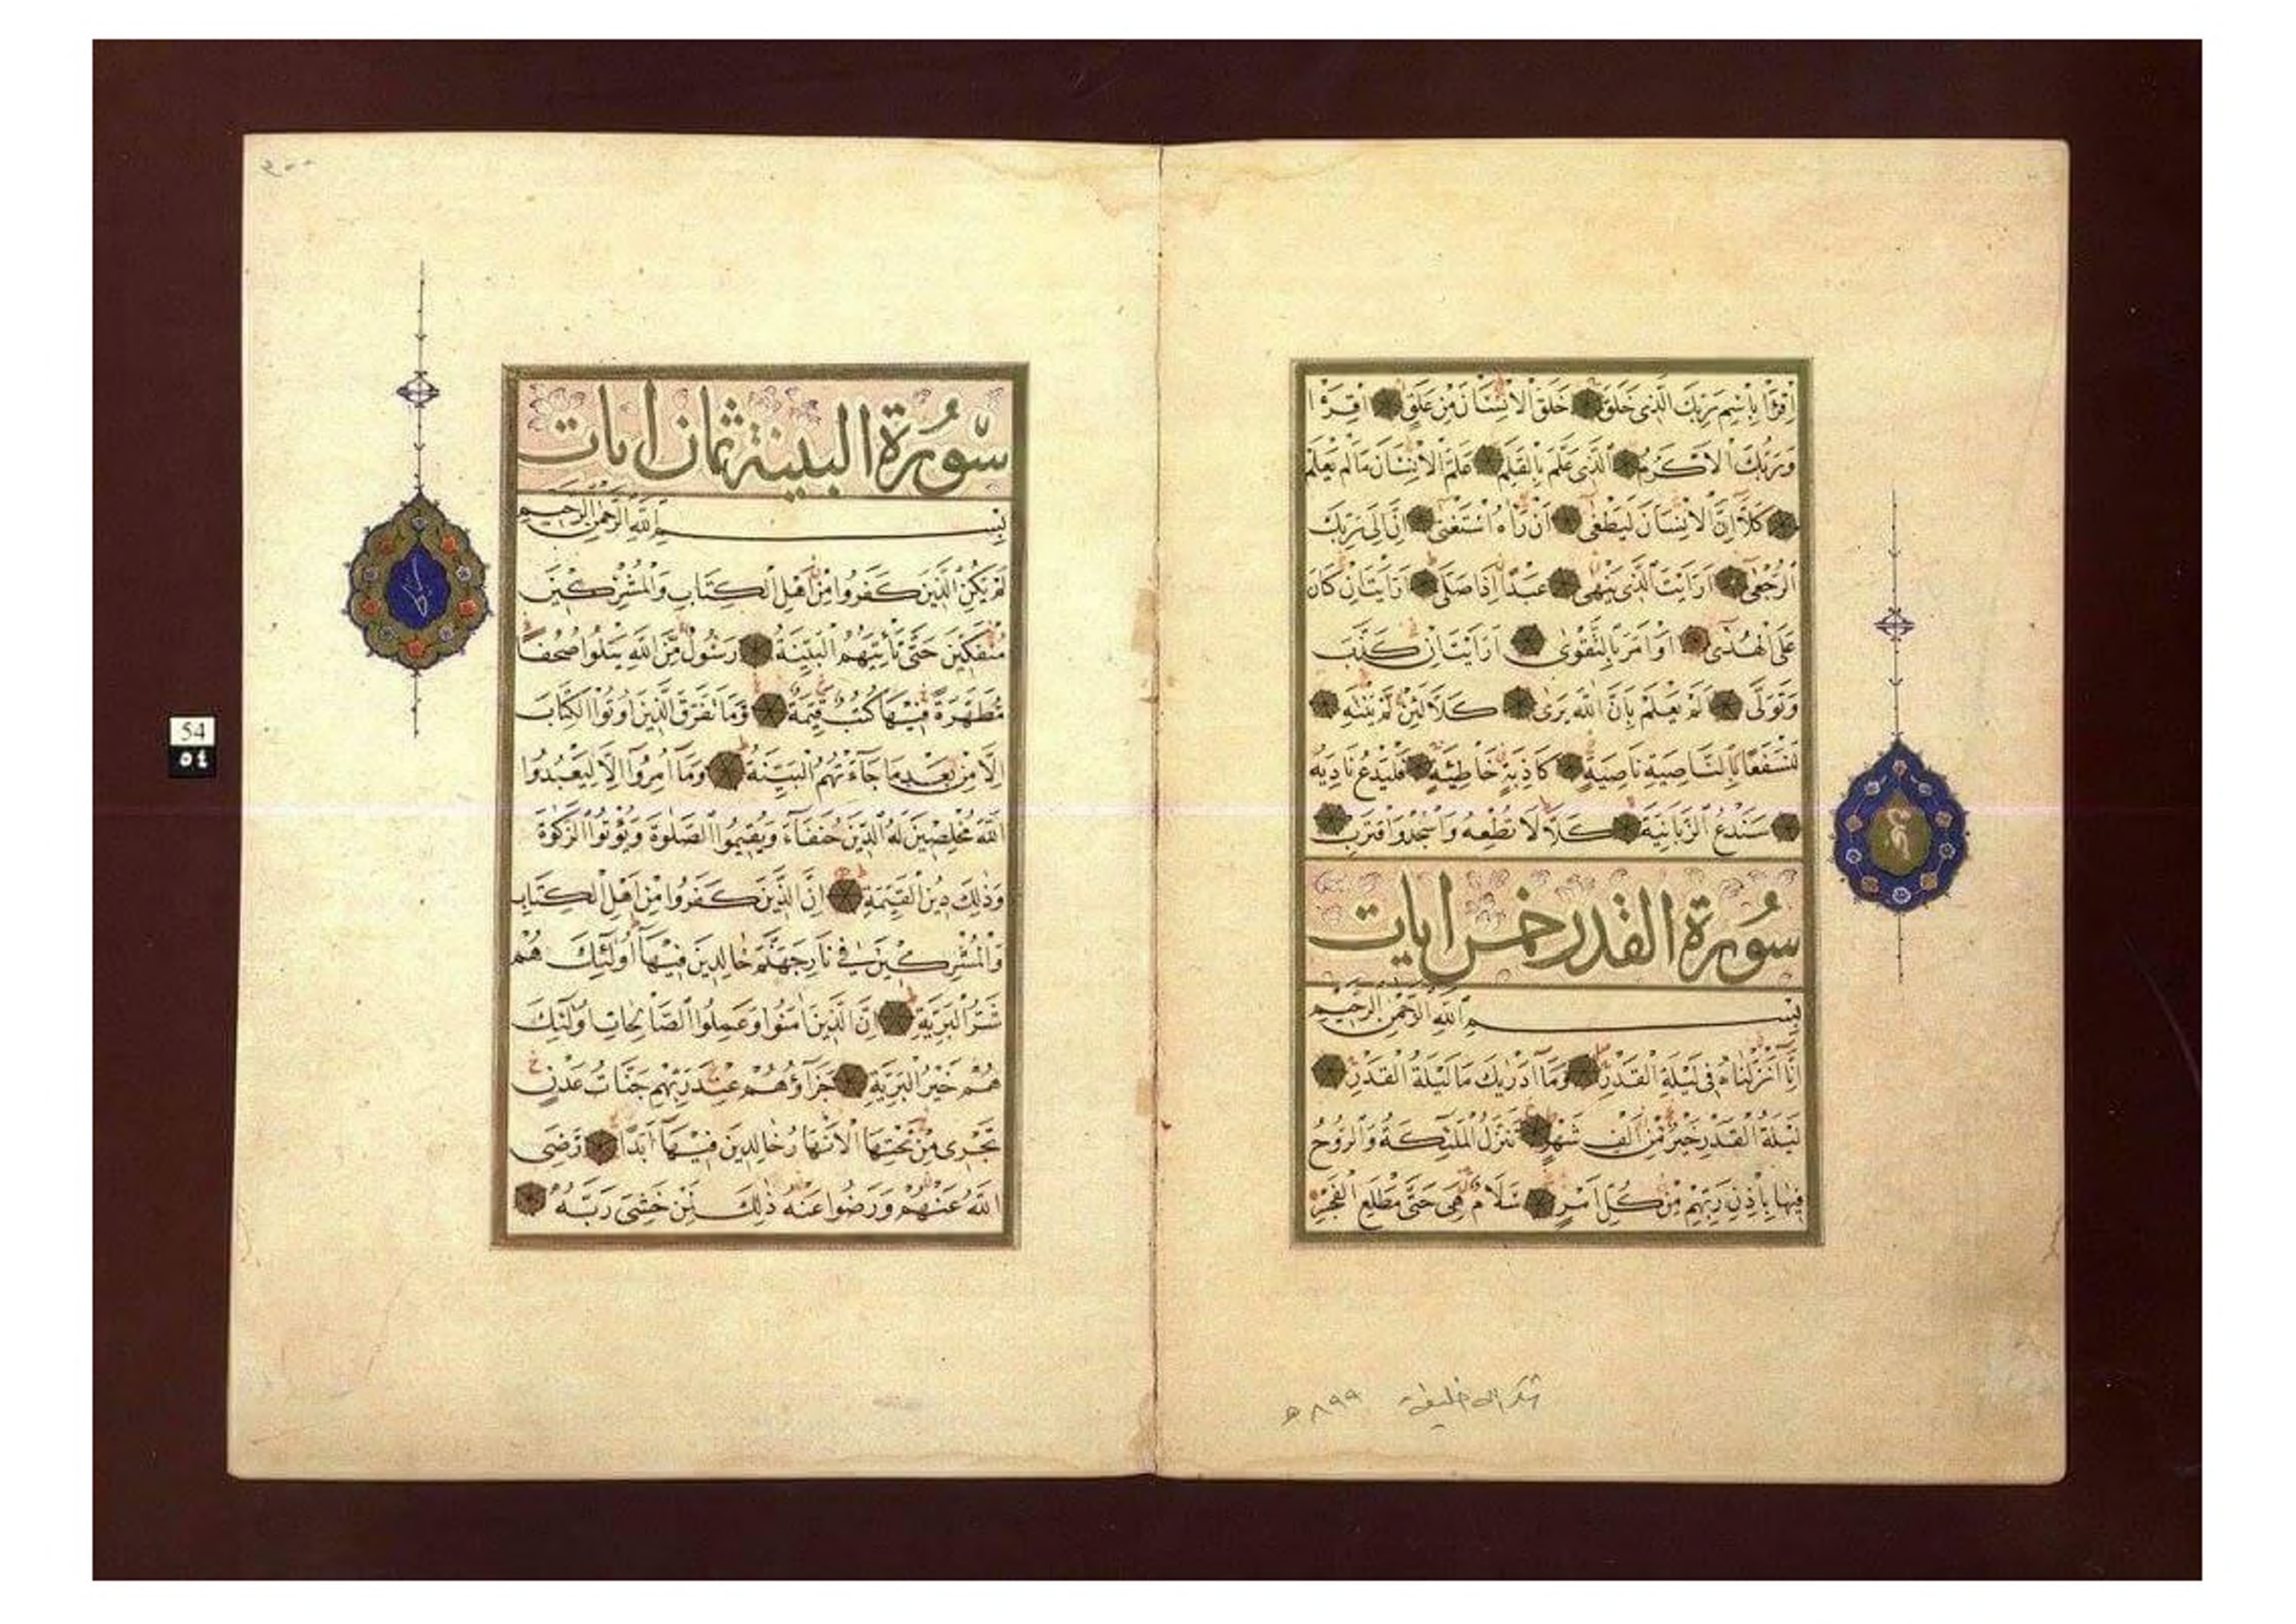 اِقْرَأْ بِاسْمِ رَبِّكَ الَّذِى خَلَقَ خَلَقَ الْاِنْسَانَ مِنْ عَلَقٍ اِقْرَاْ
وَرَبُّكَ الْاَكْرَمُ اَلَّذِى عَلَّمَ بِالْقَلَمِ عَلَّمَ الْاِنْسَانَ مَا لَمْ يَعْلَمْ
كَلَّا اِنَّ الْاِنْسَانَ لَيَطْغٰى اَنْ رَاٰهُ اسْتَغْنٰى اِنَّ اِلٰى رَبِّكَ
الرُّجْعٰى اَرَاَيْتَ الَّذِى يَنْهٰى عَبْدًا اِذَا صَلّٰى اَرَاَيْتَ اِنْ كَانَ
عَلَى الْهُدٰى اَوْ اَمَرَ بِالتَّقْوٰى اَرَاَيْتَ اِنْ كَذَّبَ
وَتَوَلّٰى اَلَمْ يَعْلَمْ بِاَنَّ اللّٰهَ يَرٰى كَلَّا لَئِنْ لَمْ يَنْتَهِ
لَنَسْفَعًا بِالنَّاصِيَةِ نَاصِيَةٍ كَاذِبَةٍ خَاطِئَةٍ فَلْيَدْعُ نَادِيَهُ
سَنَدْعُ الزَّبَانِيَةَ كَلَّا لَا تُطِعْهُ وَاسْجُدْ وَاقْتَرِبْ
سُورَةُ القدر خمس ايات
بِسْمِ اللّٰهِ الرَّحْمٰنِ الرَّحِيمِ
اِنَّا اَنْزَلْنَاهُ فِى لَيْلَةِ الْقَدْرِ وَمَا اَدْرٰيكَ مَا لَيْلَةُ الْقَدْرِ
لَيْلَةُ الْقَدْرِ خَيْرٌ مِنْ اَلْفِ شَهْرٍ تَنَزَّلُ الْمَلٰئِكَةُ وَالرُّوحُ
فِيهَا بِاِذْنِ رَبِّهِمْ مِنْ كُلِّ اَمْرٍ سَلَامٌ هِىَ حَتّٰى مَطْلَعِ الْفَجْرِ
٨٩٩ هـ
٢٠٠
سُورَةُ البينة ثمان ايات
بِسْمِ اللّٰهِ الرَّحْمٰنِ الرَّحِيمِ
لَمْ يَكُنِ الَّذِينَ كَفَرُوا مِنْ اَهْلِ الْكِتَابِ وَالْمُشْرِكِينَ
مُنْفَكِّينَ حَتّٰى تَأْتِيَهُمُ الْبَيِّنَةُ رَسُولٌ مِنَ اللّٰهِ يَتْلُوا صُحُفًا
مُطَهَّرَةً فِيهَا كُتُبٌ قَيِّمَةٌ وَمَا تَفَرَّقَ الَّذِينَ اُوتُوا الْكِتَابَ
اِلَّا مِنْ بَعْدِ مَا جَاءَتْهُمُ الْبَيِّنَةُ وَمَا اُمِرُوا اِلَّا لِيَعْبُدُوا
اللّٰهَ مُخْلِصِينَ لَهُ الدِّينَ حُنَفَاءَ وَيُقِيمُوا الصَّلٰوةَ وَيُؤْتُوا الزَّكٰوةَ
وَذٰلِكَ دِينُ الْقَيِّمَةِ اِنَّ الَّذِينَ كَفَرُوا مِنْ اَهْلِ الْكِتَابِ
وَالْمُشْرِكِينَ فِى نَارِ جَهَنَّمَ خَالِدِينَ فِيهَا اُولٰئِكَ هُمْ
شَرُّ الْبَرِيَّةِ اِنَّ الَّذِينَ اٰمَنُوا وَعَمِلُوا الصَّالِحَاتِ اُولٰئِكَ
هُمْ خَيْرُ الْبَرِيَّةِ جَزَاؤُهُمْ عِنْدَ رَبِّهِمْ جَنَّاتُ عَدْنٍ
تَجْرِى مِنْ تَحْتِهَا الْاَنْهَارُ خَالِدِينَ فِيهَا اَبَدًا رَضِىَ
اللّٰهُ عَنْهُمْ وَرَضُوا عَنْهُ ذٰلِكَ لِمَنْ خَشِىَ رَبَّهُ
54
٥٤